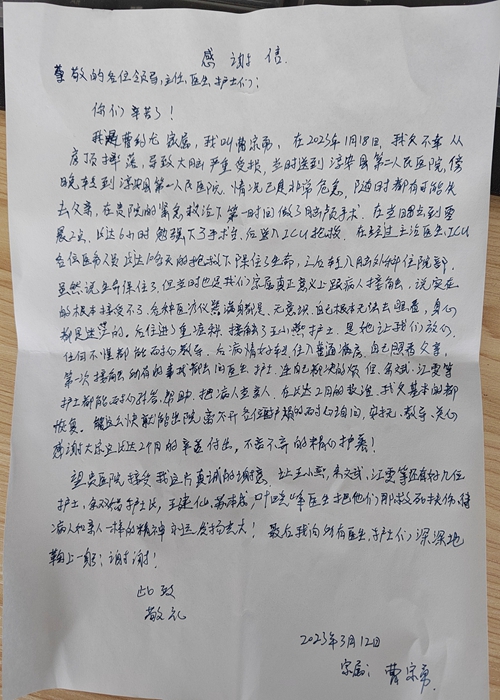 感谢信.
尊敬的各位领导,主任,医生,护士们:
你们辛苦了!
我是曹约元家属,我叫曹宗勇,在2023年1月18日,我父不幸从
房顶摔落,导致大脑严重受损,当时送到淳安县第二人民医院,傍
晚转到淳安县第一人民医院,情况已是非常危急,随时都有可能失
去父亲,在贵院的紧急救治下第一时间做了开颅手术,在当晚
2点,长达6小时勉强下了手术台,后进入ICU抢救,在经过主治医生,ICU
各位医务人员长达10多天的抢救下保住了生命,之后转入脑外科住院部.
虽然说生命保住了,但当时也是我们家属真正意义上跟病人接触,说实在
的根本接受不了.各种医疗仪器满身都是.无意识.自己根本无法去照顾,真的
都是迷茫的.后住进了重症科.接触了王小燕护士,是她让我们放心.
任何不懂都能耐心教导.后病情好转,住入普通病房,自己照看父亲,
第一次接触所有的事我都去问医生护士,连自己都决的烦,但余斌,江雯等
护士都能耐心解答,帮助,把病人当亲人.在长达2月的救治,我父基本的都
恢复.能这么快就能出院离不开各位医护人员的耐心询问,安抚,教导,关心
感谢大家这长达2个月的辛苦付出,不舍不弃的精心护养!
望贵医院接受我这片真诚的谢意,让王小燕,余斌,江雯等还有好几位
护士,护士长,王建仙,叶晓峰医生把他们那救死扶伤,待
病人如亲人一样的精神永远发扬光大!最后我向所有医生,护士们深深地
鞠上一躬:谢谢!
此致
敬礼
2023年3月12日
家属:曹宗勇